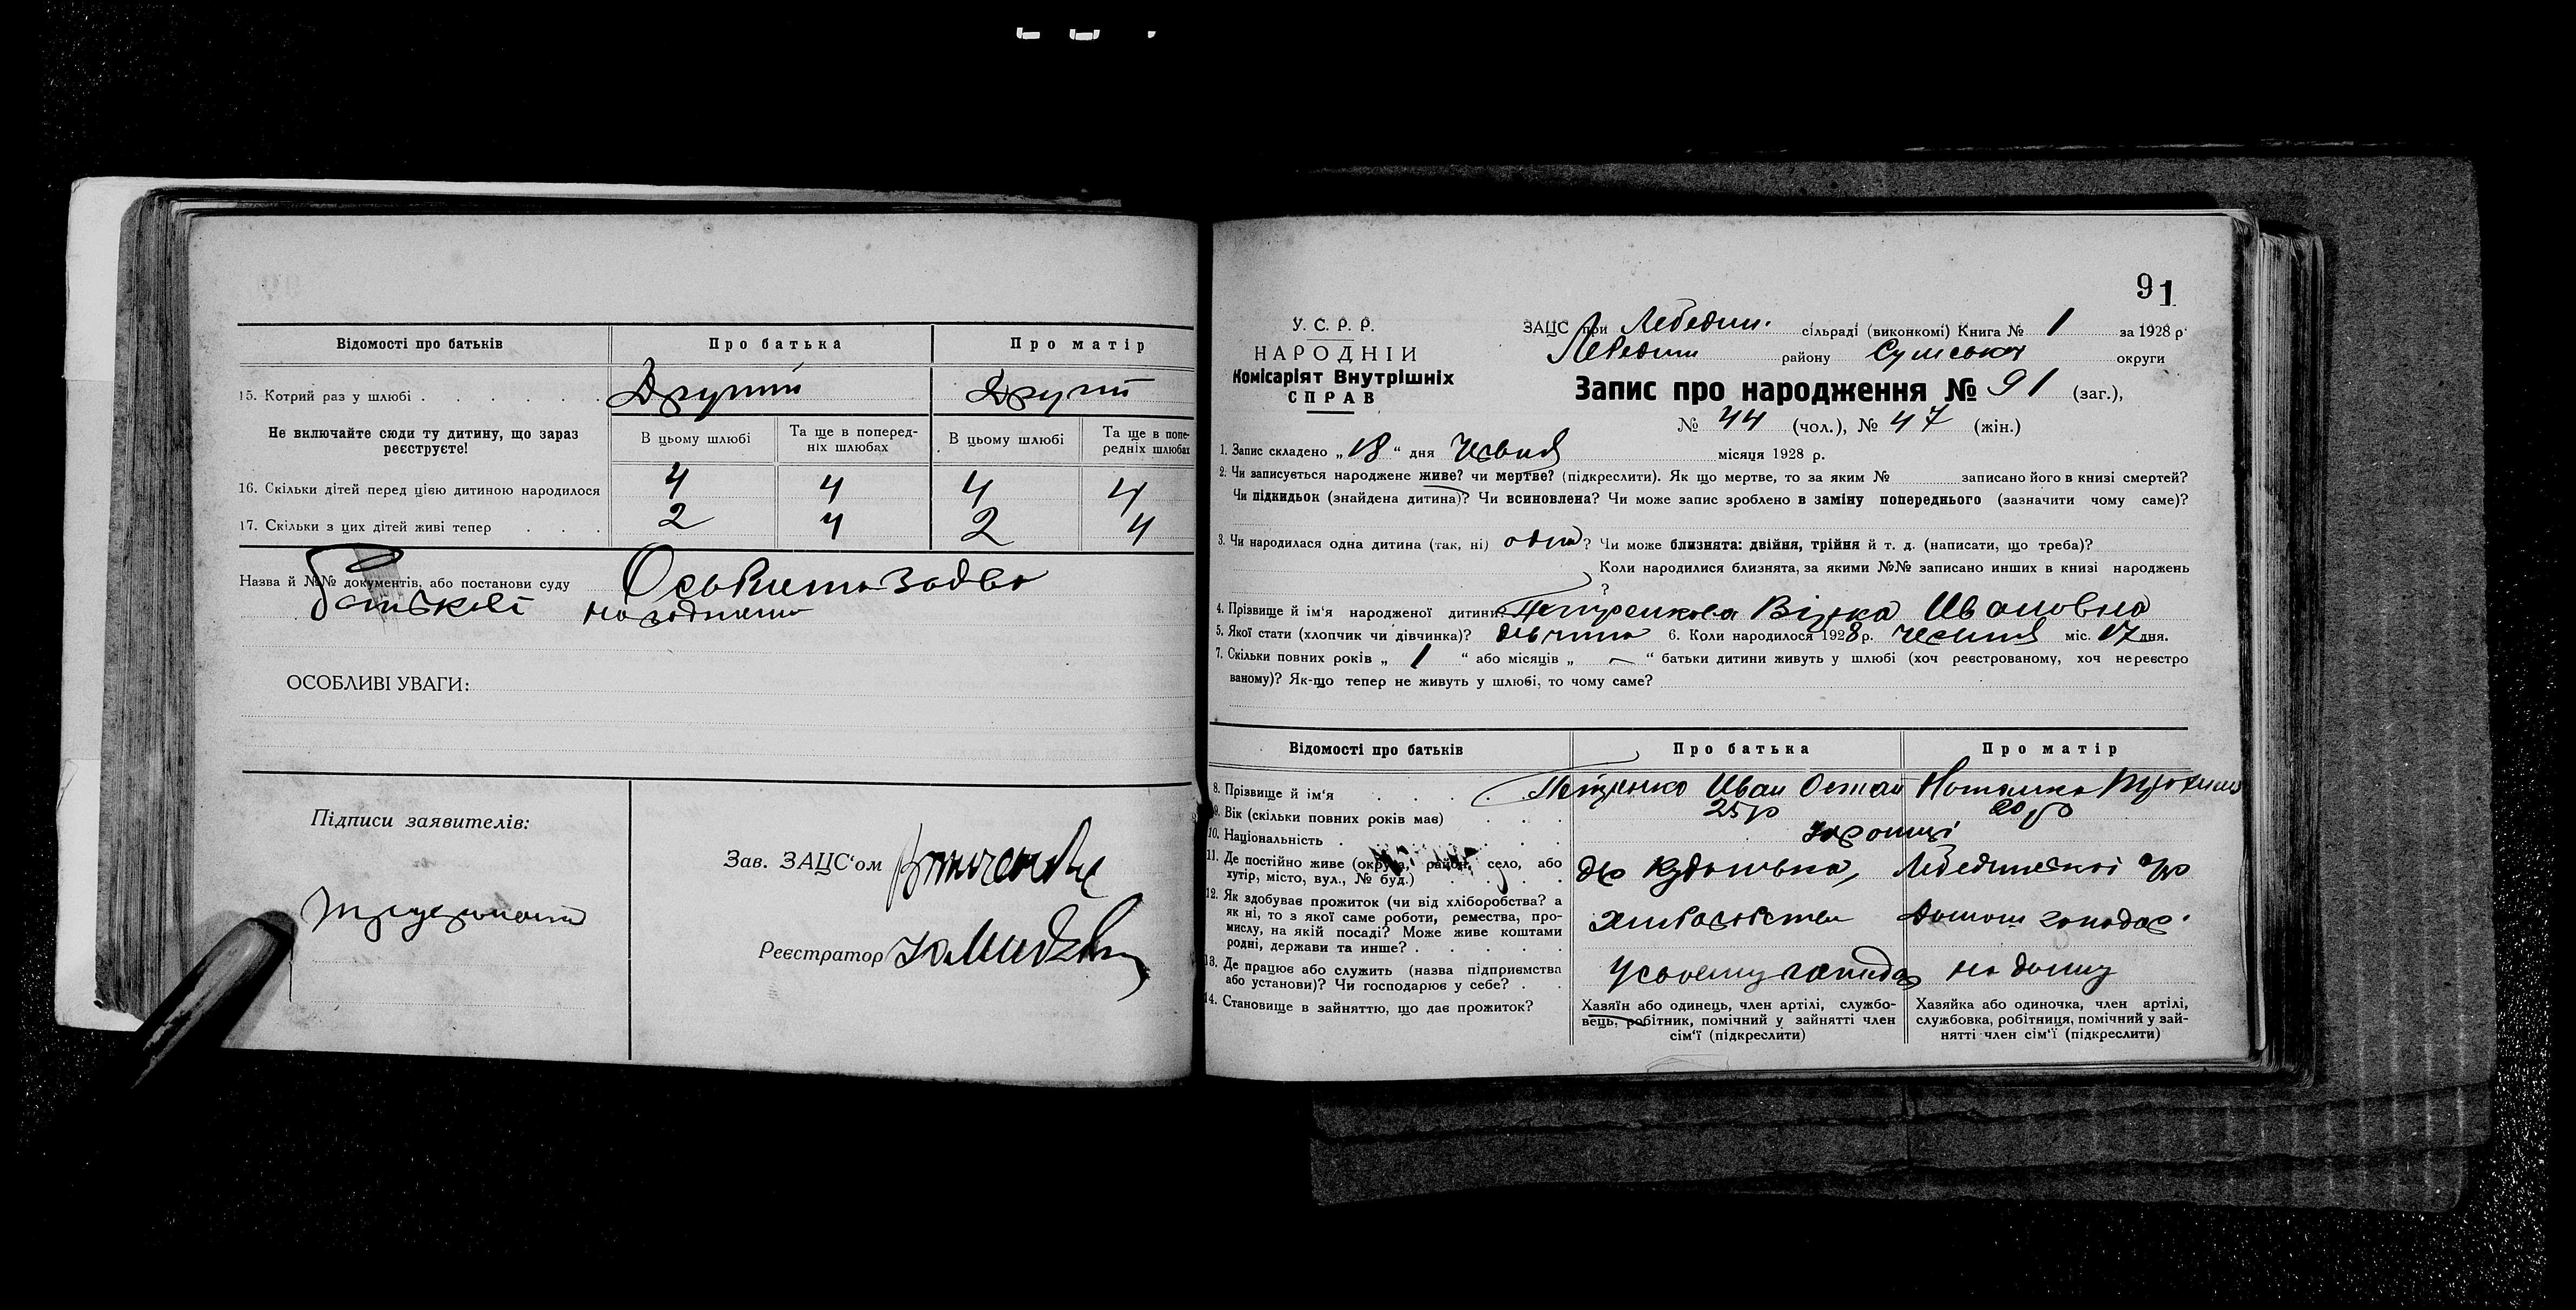 Відомості про батьків Про батька Про матір
15. Котрий раз у шлюбі Другий Другий
Не включайте сюди ту дитину, що зараз реєструєте!
В цьому шлюбі Та ще в попередніх шлюбах В цьому шлюбі Та ще в попередніх шлюбах
16. Скільки дітей перед цією дитиною народилося 4 4 4 4
17. Скільки з цих дітей живі тепер 2 4 2 4
Назва й №№ документів, або постанови суду
ОСОБЛИВІ УВАГИ:
Підписи заявителів:
Зав. ЗАЦС'ом
Реєстратор
91
У. С. Р. Р.
НАРОДНІЙ
Комісаріят Внутрішніх
СПРАВ
ЗАЦС при Лебедин. сільраді (виконкомі) Книга № 1 за 1928 р.
Лебедин району Сумської округи
Запис про народження № 91 (заг.),
№ 44 (чол.), № 47 (жін.)
1. Запис складено „18" дня Червня місяця 1928 р.
2. Чи записується народжене живе? чи мертве? (підкреслити). Як що мертве, то за яким № записано його в книзі смертей?
Чи підкидьок (знайдена дитина)? Чи всиновлена? Чи може запис зроблено в заміну попереднього (зазначити чому саме)?
3. Чи народилася одна дитина (так, ні) одна? Чи може близнята: двійня, трійня й т. д. (написати, що треба)?
Коли народилися близнята, за якими №№ записано инших в книзі народжень
?
4. Прізвище й ім'я народженої дитини: Ивановна
5. Якої стати (хлопчик чи дівчинка)? дівчина 6. Коли народилося 1928 р. червня міс. 17 дня.
7. Скільки повних років „ 1 " або місяців „ — " батьки дитини живуть у шлюбі (хоч реєстрованому, хоч нереєстро
ваному)? Як-що тепер не живуть у шлюбі, то чому саме?
Відомості про батьків Про батька Про матір
8. Прізвище й ім'я Иван
9. Вік (скільки повних років має) 25 р 20 р
10. Національність українці
11. Де постійно живе (округа, район, село, або
хутір, місто, вул., № буд.)
12. Як здобуває прожиток (чи від хліборобства? а
як ні, то з якої саме роботи, ремества, про-
мислу, на якій посаді? Може живе коштами
родні, держави та инше?
13. Де працює або служить (назва підприємства
або установи)? Чи господарює у себе? на дому
14. Становище в зайняттю, що дає прожиток?
Хазяїн або одинець, член артілі, службо-
вець, робітник, помічний у зайнятті член
сім'ї (підкреслити)
Хазяйка або одиночка, член артілі,
службовка, робітниця, помічний у зай-
нятті член сім'ї (підкреслити)